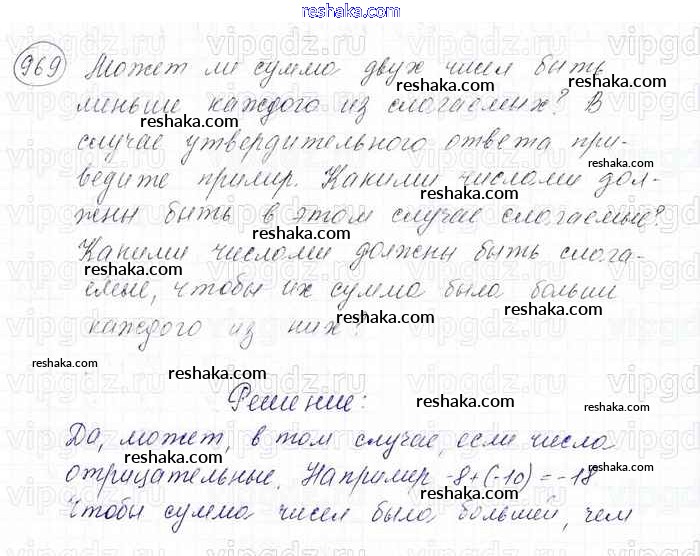 reshaka.com
969 Может ли сумма двух чисел быть
меньше каждого из слогаемых? В
случае утвердительного ответа при-
ведите пример. Какими числами дол-
жны быть в этом случае слогаемые?
Какими числами должны быть слога-
емые, чтобы их сумма была больши
каждого из них?
Решение:
Да, может, в том случае, если числа
отрицательные. Например -8+(-10)=-18
Чтобы сумма чисел была большей, чем